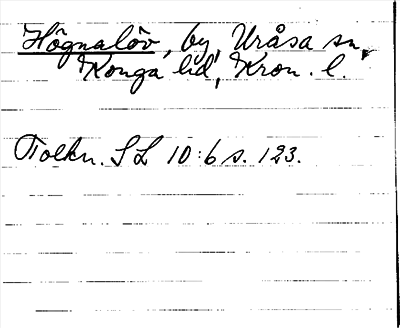 Högnalöv, by, Uråsa sn,
Konga hd, Kron. l.
Tolkn. SL 10:6 s. 123.